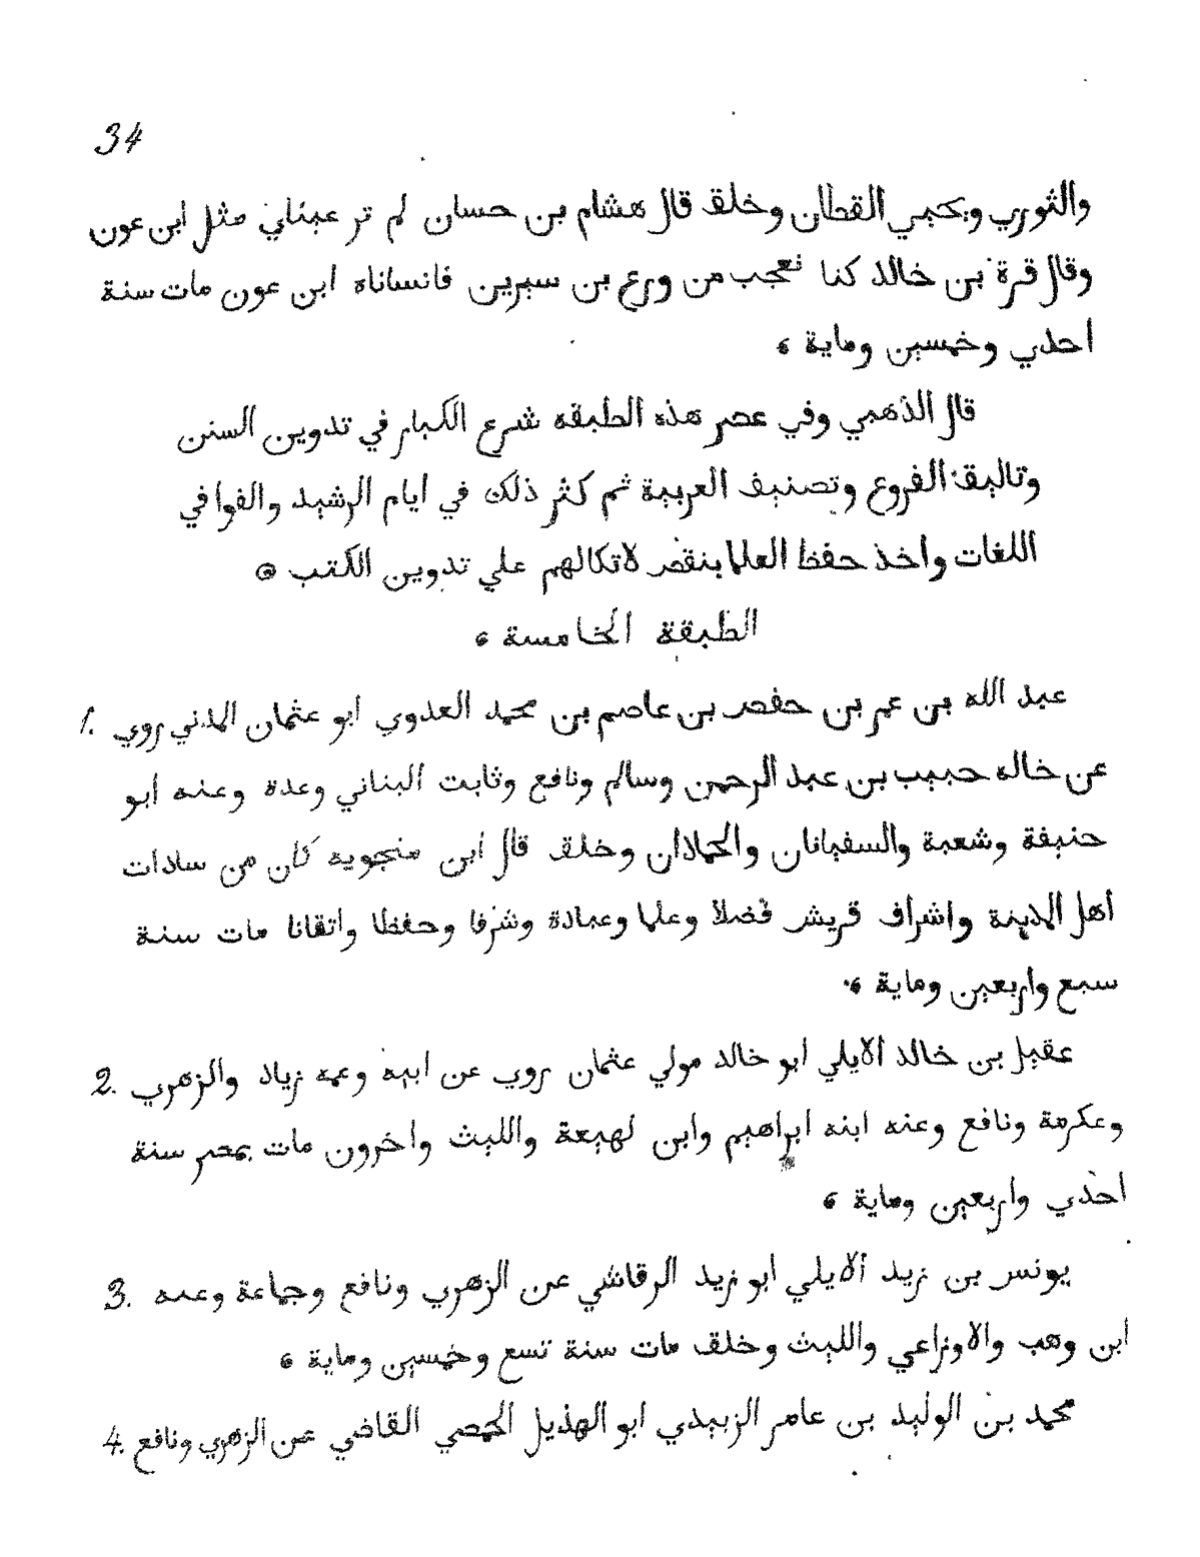 34
والثوري ويحيي القطان وخلق قال هشام بن حسان لم تر عيناي مثل ابن عون
وقال قرة بن خالد كنا نعجب من ورع بن سيرين فانساناه ابن عون مات سنة
احدي وخمسين وماية ،
قال الذهبي وفي عصر هذه الطبقه شرع الكبار في تدوين السنن
وتاليف الفروع وتصنيف العربية ثم كثر ذلك في ايام الرشيد والفوا في
اللغات واخذ حفظ العلما ينقص لاتكالهم علي تدوين الكتب
الطبقة الخامسة ،
1. عبد الله بن عمر بن حفص بن عاصم بن محمد العدوي ابو عثمان المدني روي
عن خاله حبيب بن عبد الرحمن وسالم ونافع وثابت البناني وعدة وعنه ابو
حنيفة وشعبة والسفيانان والحمادان وخلق قال ابن منجويه كان من سادات
اهل المدينة واشراف قريش فضلا وعلما وعبادة وشرفا وحفظا واتقانا مات سنة
سبع واربعين وماية ،
2. عقيل بن خالد الايلي ابو خالد مولي عثمان روي عن ابيه وعمه زياد والزهري
وعكرمة ونافع وعنه ابنه ابراهيم وابن لهيعة والليث واخرون مات بمصر سنة
احدي واربعين وماية ،
3. يونس بن زيد الايلي ابو زيد الرقاشي عن الزهري ونافع وجماعة وعنه
ابن وهب والاوزاعي والليث وخلق مات سنة تسع وخمسين وماية ،
4. محمد بن الوليد بن عامر الزبيدي ابو الهذيل الحمصي القاضي عن الزهري ونافع